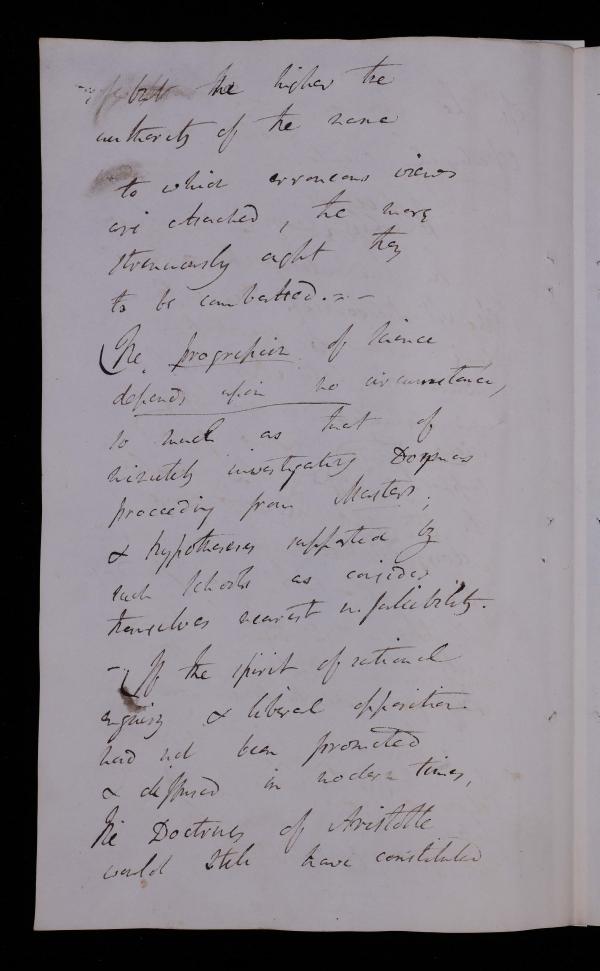 but the higher the
authority of the name
to which erroneous views
are attached, the more
strenuously ought they
to be combatted. - -
(The progression of science
depends upon no circumstance,
so much as that of
minutely investigating Dogmas
proceeding from Masters,
& hypotheses supported by
such schools as consider
themselves nearest infallibility.
- If the spirit of rational
enquiry & liberal opposition
had not been promoted
& diffused in modern times,
the Doctrines of Aristotle
would still have constituted